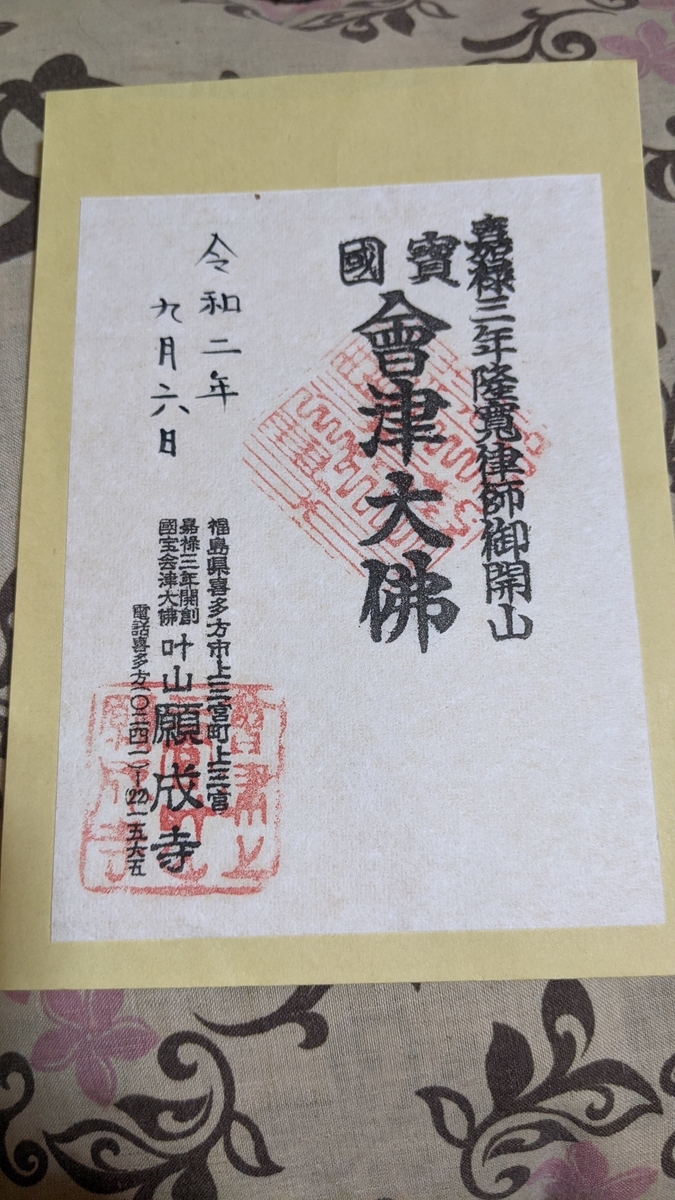 嘉祿三年隆寛律師御開山
國寶
會津大佛
令和二年
九月六日
福島県喜多方市上三宮町上三宮
嘉祿三年開創
國宝会津大佛
叶山願成寺
電話喜多方(〇二四一)-(22)一五六五